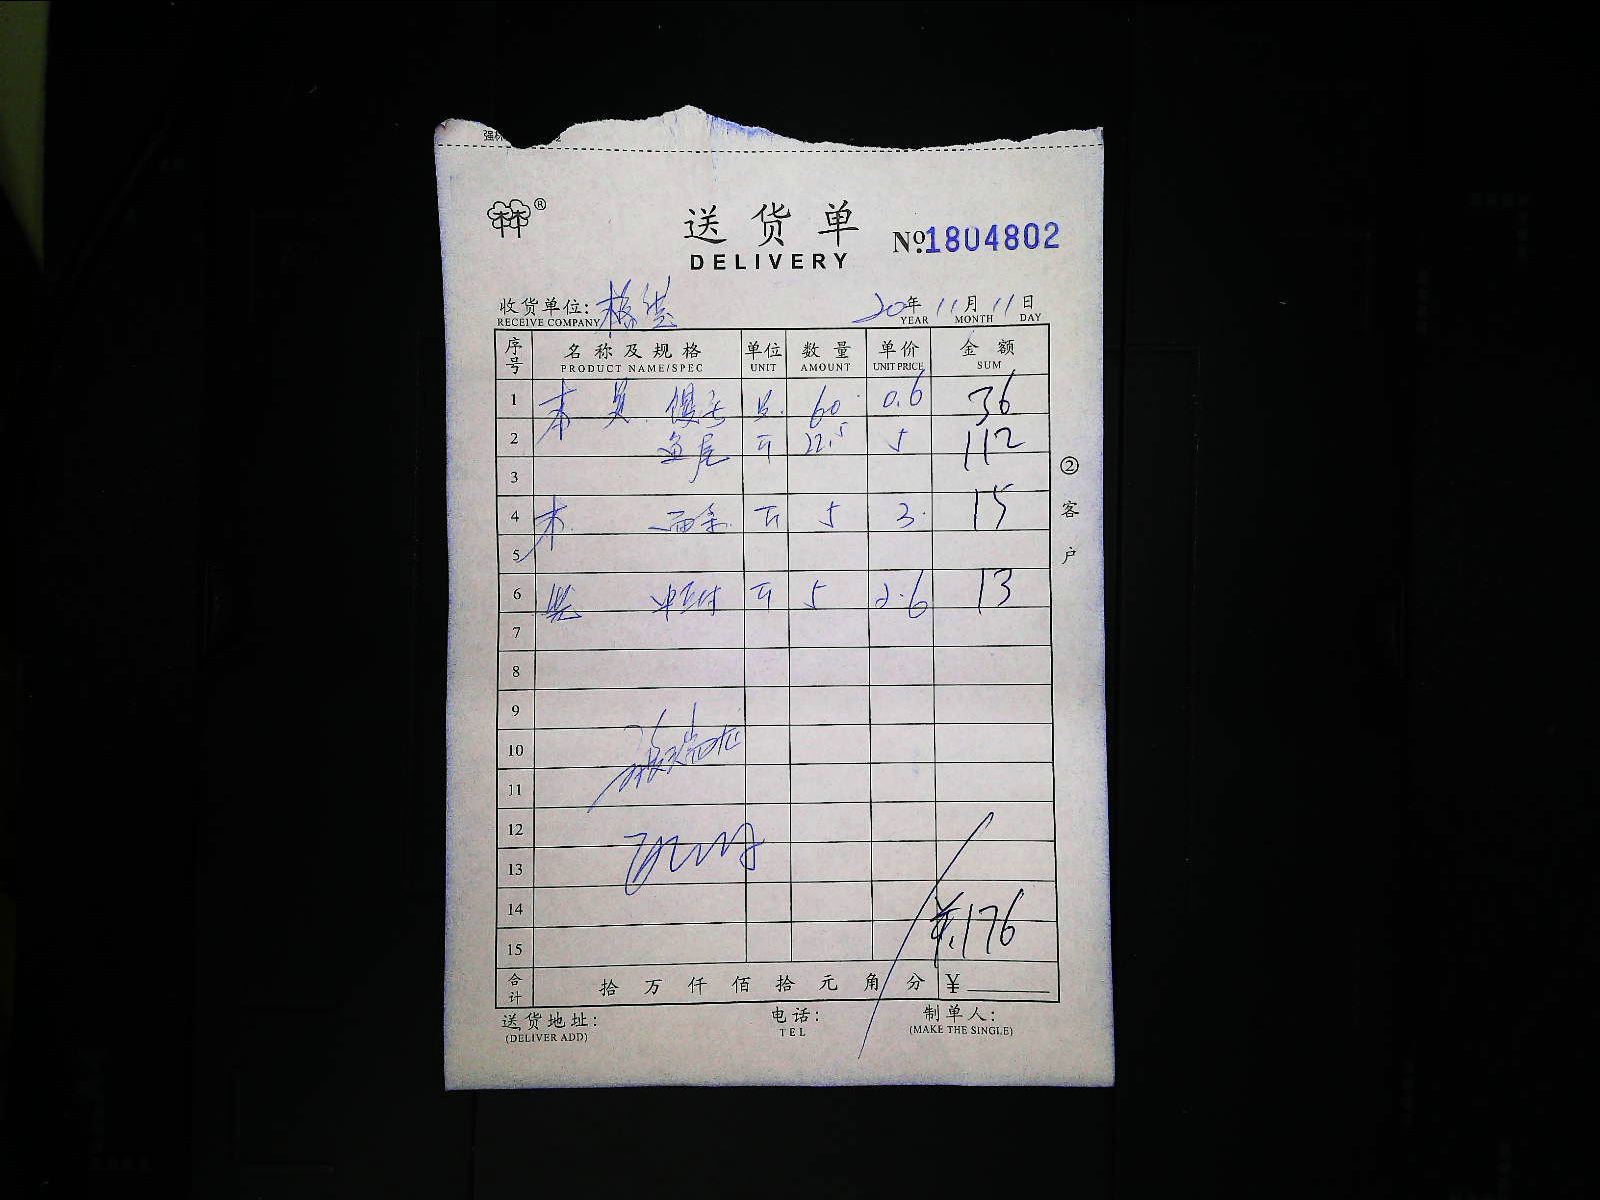 送货单
№1804802
DELIVERY
收货单位: 20年 11月 11日
RECEIVE COMPANY YEAR MONTH DAY
序号 名称及规格 单位 数量 单价 金额
PRODUCT NAME/SPEC UNIT AMOUNT UNIT PRICE SUM
1 馒头 只 60 0.6 36
2 鱼尾 斤 22.5 5 112
3
4 西芹 斤 5 3 15
5
6 斤 5 2.6 13
7
8
9
10
11
12
13
14 ¥176
15
合计 拾 万 仟 佰 拾 元 角 分 ¥
送货地址: 电话: 制单人:
(DELIVER ADD) TEL (MAKE THE SINGLE)
② 客户